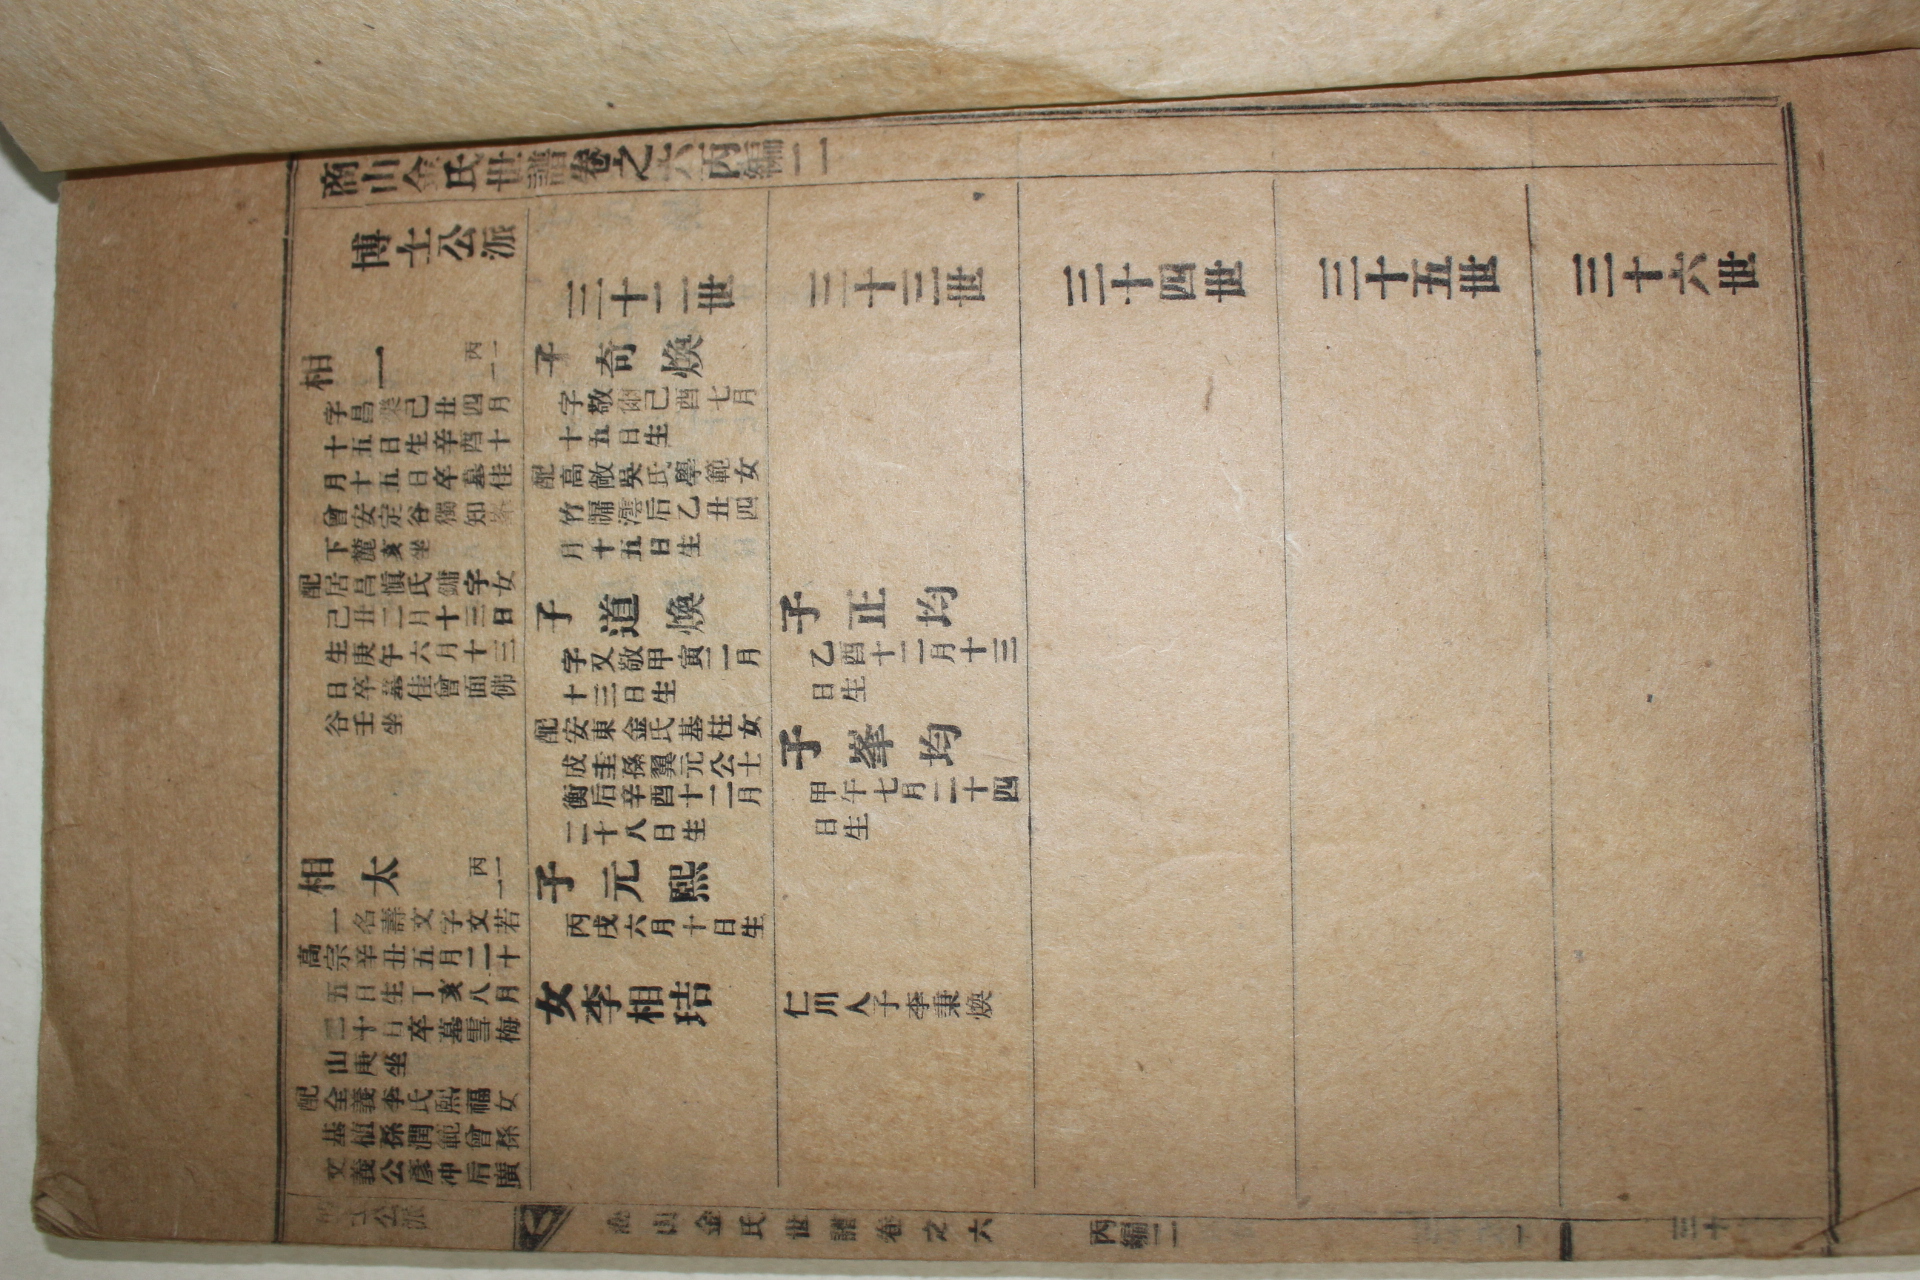 商山金氏世譜卷之六丙編二
博士公派
三十二世
三十三世
三十四世
三十五世
三十六世
相一
丙一
字昌燮己丑四月
十五日生辛酉十
月十五日卒墓佳
會安定谷獨知
下麓亥坐
配居昌愼氏鏞宇女
己丑二月十三日
生庚午六月十三
日卒墓佳會面佛
谷壬坐
子奇煥
字敬 己酉七月
十五日生
配高敞吳氏學範女
竹 澐后乙丑四
月十五日生
子道煥
字又敬甲寅二月
十三日生
配安東金氏基柱女
成圭孫翼元公士
衡后辛酉十二月
二十八日生
子正均
乙酉十二月十三
日生
子峯均
甲午七月二十四
日生
相太
丙一
一名壽文字文若
高宗辛丑五月二十
五日生丁亥八月
二十日卒墓雪梅
山庚坐
配全義李氏熙福女
基植孫潤範曾孫
文義公彥冲后廣
子元熙
丙戌六月十日生
女李相琺
仁川人子李秉煥
士公派
山金氏世譜卷之六
丙編二
一
三十